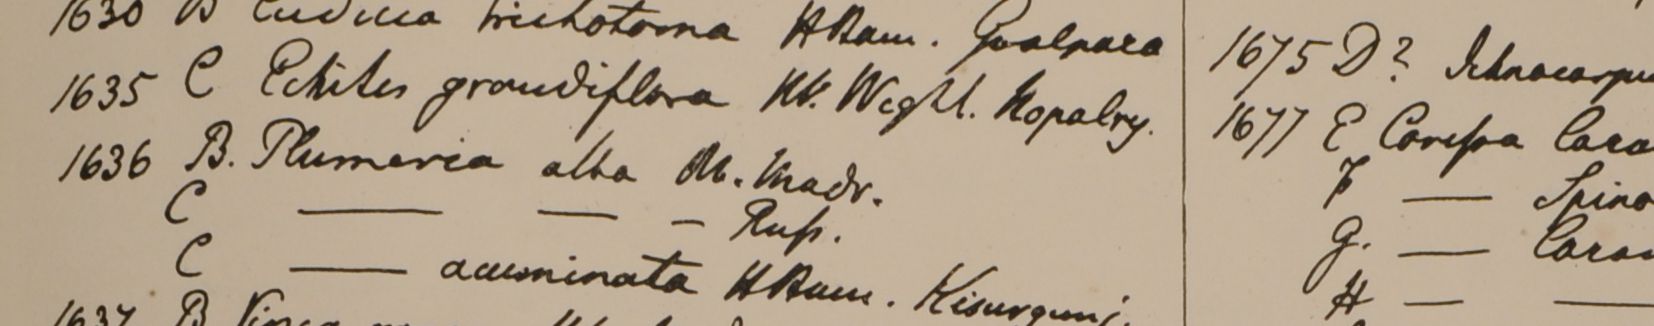 1630 B trichotoma HHam. Goalpara
1635 C Echites grandiflora Hb. Wight. Kopalry.
1636 B. Plumeria alba Hb. Madr.
C — — — Russ.
C — acuminata HHam. Kisurgunj.
1637 B Vinca
1675 D? Ichnocarpu
1677 E Carissa Cara
F — Spino
G. — Caran
H — —